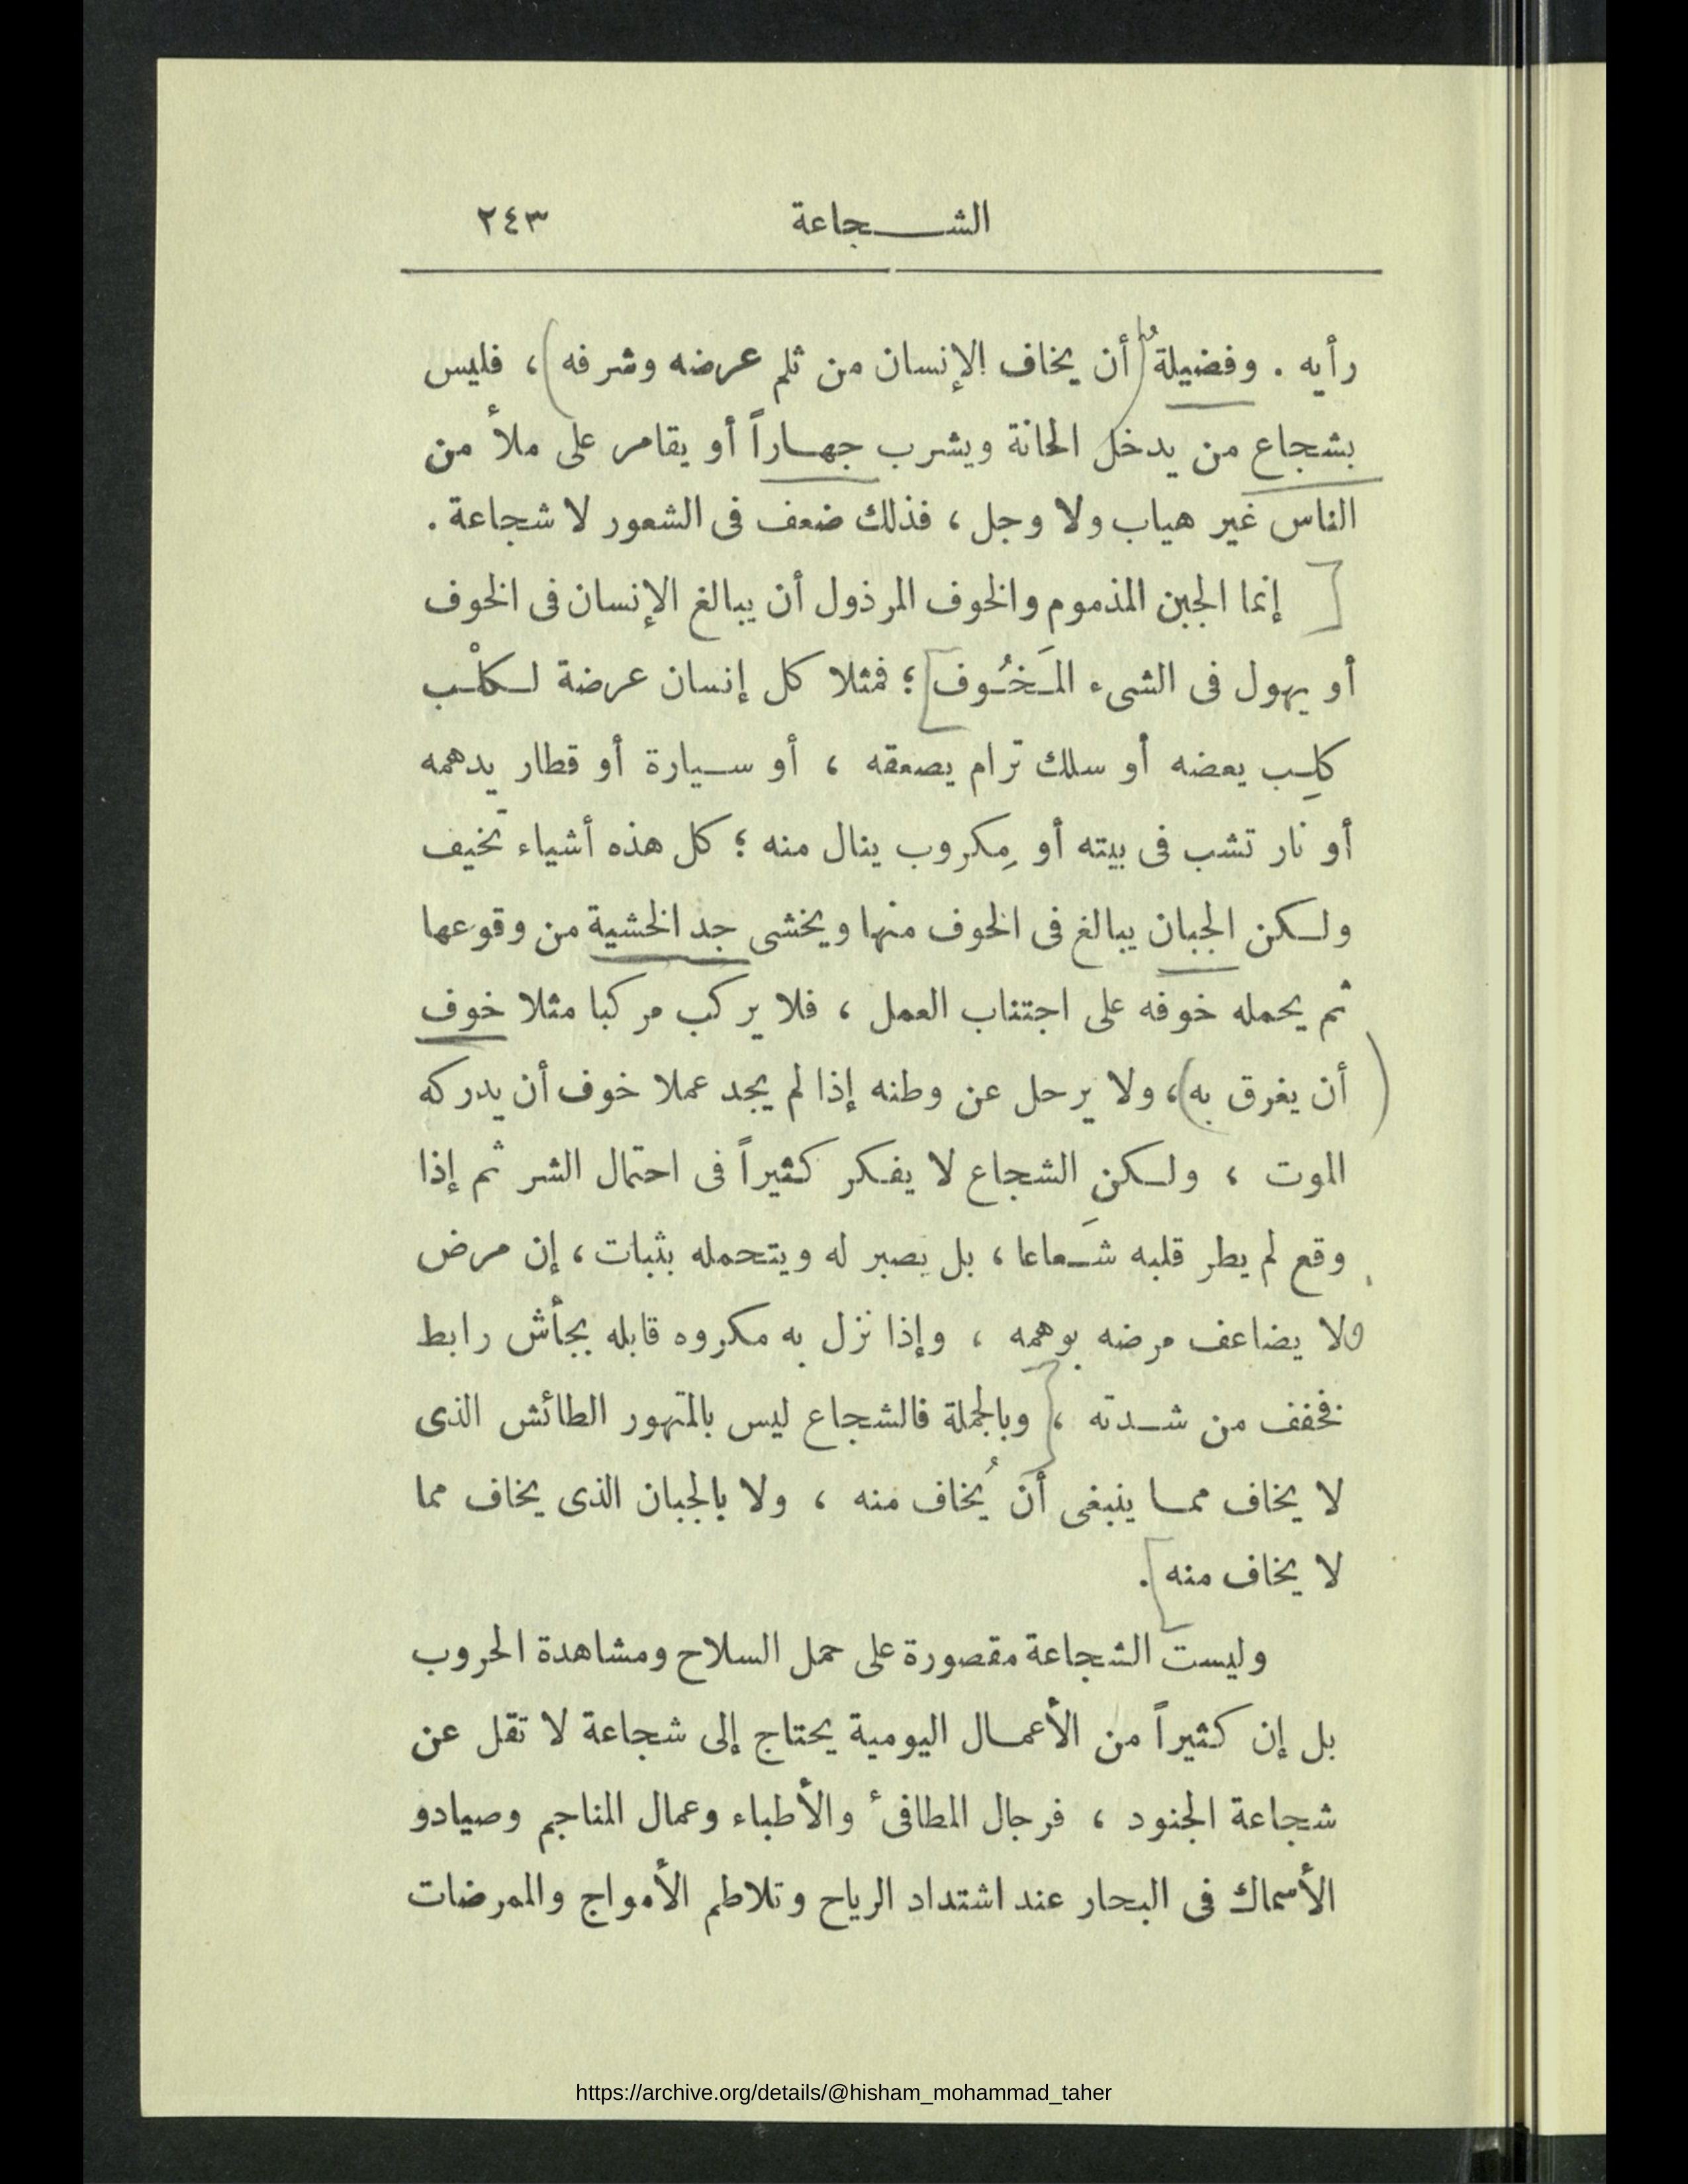 الشـــجاعة ٢٤٣
رأيه . وفضيلةٌ (أن يخاف الإنسان من ثلم عرضه وشرفه) ، فليس
بشجاع من يدخل الحانة ويشرب جهـاراً أو يقامر على ملأ من
الناس غير هياب ولا وجل ، فذلك ضعف فى الشعور لا شجاعة .
[ إنما الجبن المذموم والخوف المرذول أن يبالغ الإنسان فى الخوف
أو يهول فى الشىء المَخُوف] ؛ فمثلا كل إنسان عرضة لكلْب
كلِب يعضه أو سلك ترام يصعقه ، أو سيارة أو قطار يدهمه
أو نار تشب فى بيته أو مِكروب ينال منه ؛ كل هذه أشياء تخيف
ولكن الجبان يبالغ فى الخوف منها ويخشى جد الخشية من وقوعها
ثم يحمله خوفه على اجتناب العمل ، فلا يركب مركبا مثلا خوف
(أن يغرق به) ، ولا يرحل عن وطنه إذا لم يجد عملا خوف أن يدركه
الموت ، ولكن الشجاع لا يفكر كثيراً فى احتمال الشر ثم إذا
وقع لم يطر قلبه شَعاعا ، بل يصبر له ويتحمله بثبات ، إن مرض
ولا يضاعف مرضه بوهمه ، وإذا نزل به مكروه قابله بجأش رابط
فخفف من شدته ، [وبالجملة فالشجاع ليس بالمتهور الطائش الذى
لا يخاف مما ينبغى أن يُخاف منه ، ولا بالجبان الذى يخاف مما
لا يخاف منه] .
وليست الشجاعة مقصورة على حمل السلاح ومشاهدة الحروب
بل إن كثيراً من الأعمال اليومية يحتاج إلى شجاعة لا تقل عن
شجاعة الجنود ، فرجال المطافىء والأطباء وعمال المناجم وصيادو
الأسماك فى البحار عند اشتداد الرياح وتلاطم الأمواج والممرضات
https://archive.org/details/@hisham_mohammad_taher